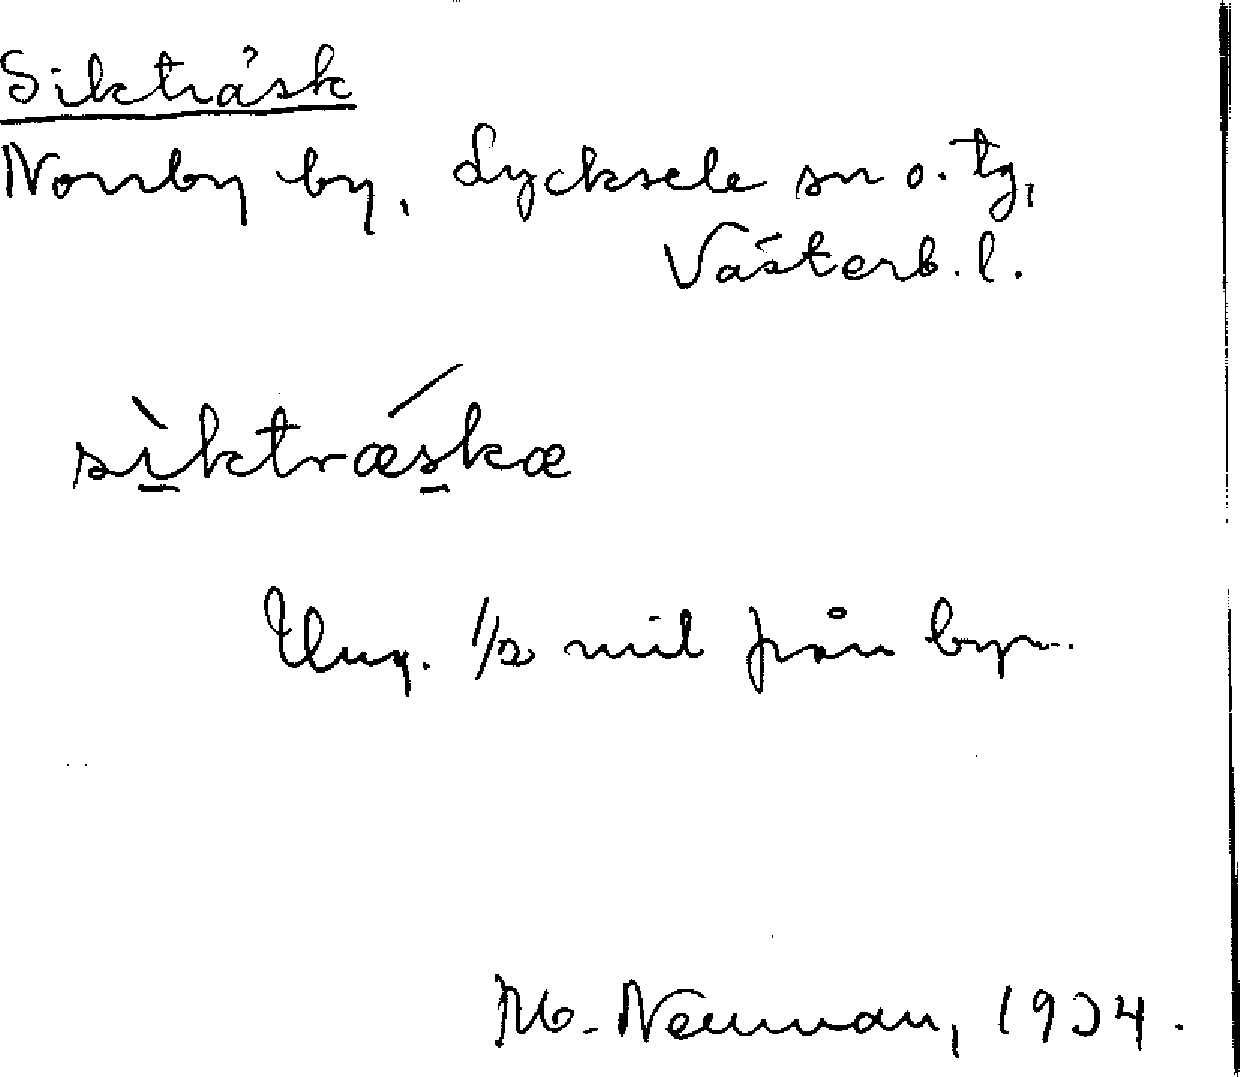 Sikträsk
Norrby by, Lycksele sn o. tg,
Västerb. l.
sìktrǽskæ
Ung. 1/2 mil från byn.
M. Neuman, 1934.